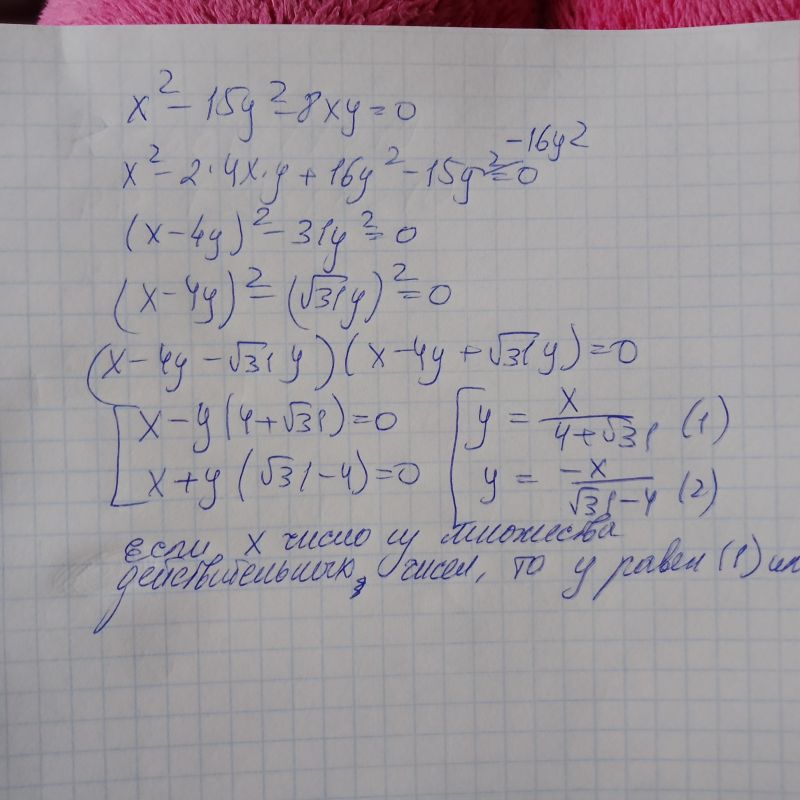 x² - 15y² - 8xy = 0
x² - 2·4x·y + 16y² - 15y² - 16y² = 0
(x - 4y)² - 31y² = 0
(x - 4y)² - (√31 y)² = 0
(x - 4y - √31 y)(x - 4y + √31 y) = 0
[ x - y(4 + √31) = 0 [ y = x / (4 + √31) (1)
x + y(√31 - 4) = 0 y = -x / (√31 - 4) (2)
если x число из множества
действительных чисел, то y равен (1) ил